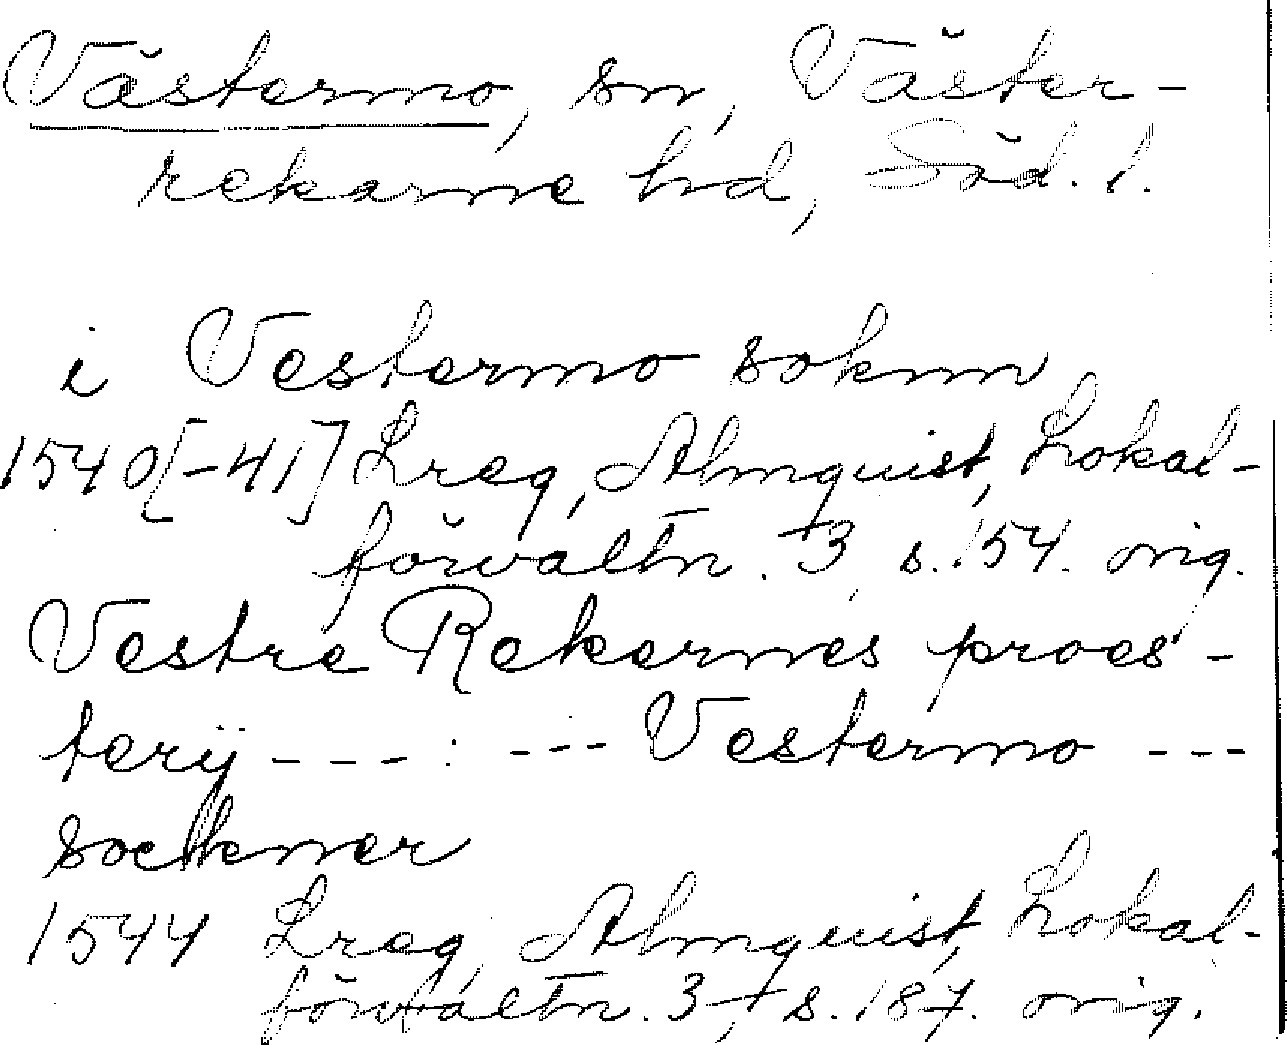 Västermo, sn, Väster-
rekarne hd, Söd. l.
i Vestermo soknn
1540[-41] Lreg, Almquist, Lokal-
förvaltn. 3, s. 154. orig.
Vestre Rekernes proes-
terij ---:--- Vestermo ---
socknner
1544 Lreg, Almquist, Lokal-
förvaltn. 3, s. 187. orig.